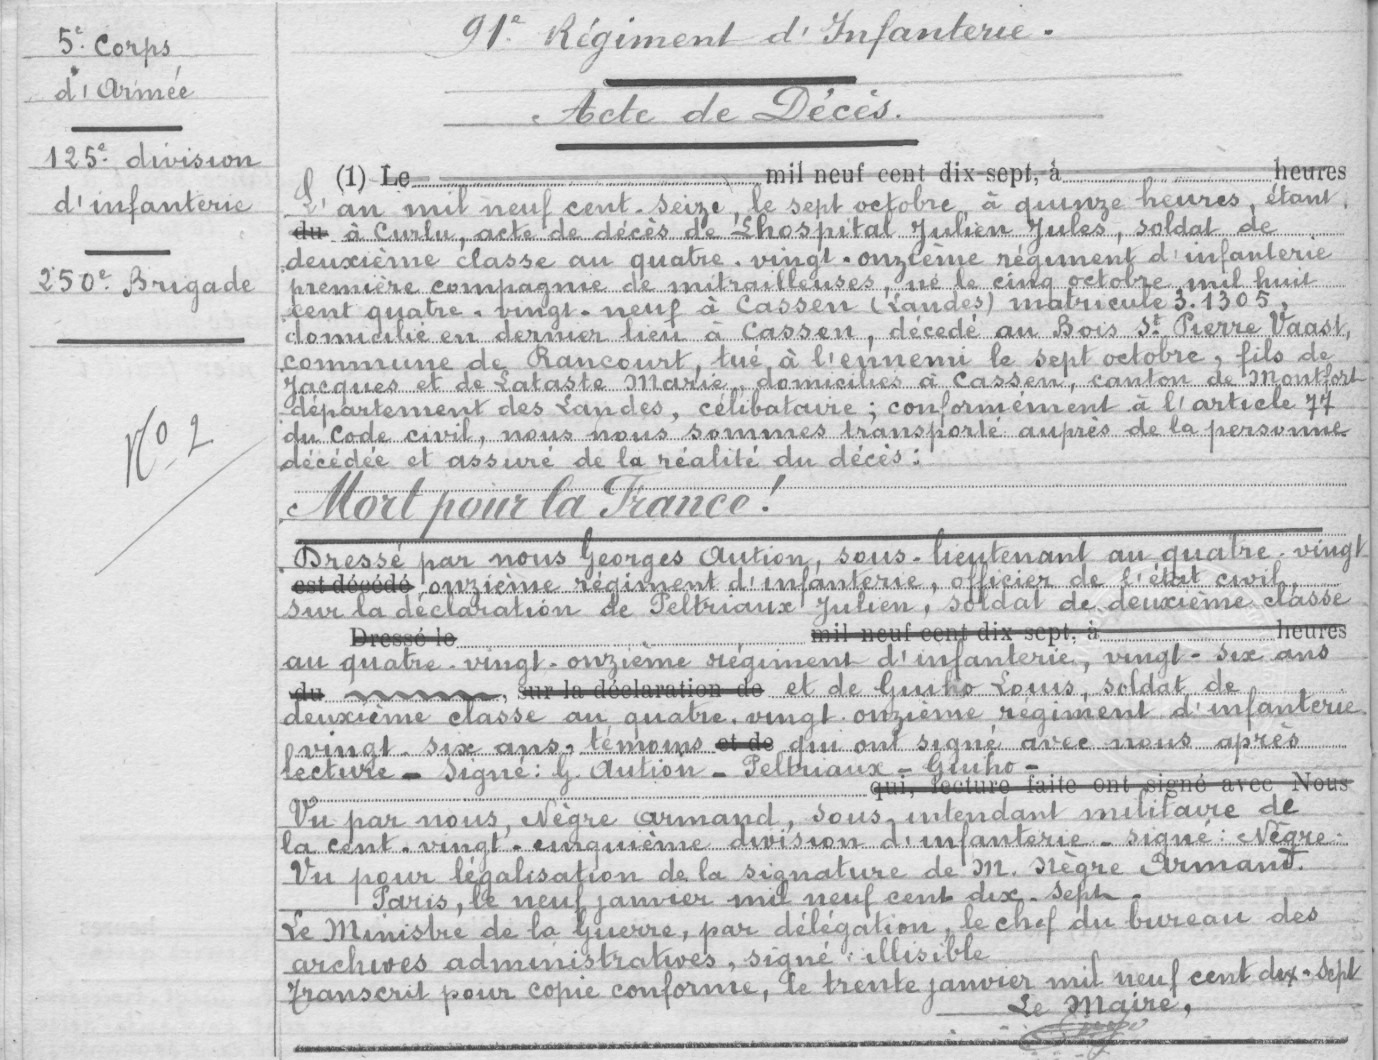 5e Corps
d'Armée
125e division
d'infanterie
250e Brigade
No 2
91e Régiment d'Infanterie.
Acte de Décès.
(1) Le mil neuf cent dix sept, à heures
L'an mil neuf cent-seize, le sept octobre, à quinze heures, étant
du à Curlu, acte de décès de Lhospital Julien Jules, soldat de
deuxième classe au quatre-vingt-onzième régiment d'infanterie
première compagnie de mitrailleuses, né le cinq octobre mil huit
cent quatre-vingt-neuf à Cassen (Landes) matricule 3.1305,
domicilié en dernier lieu à Cassen, décédé au Bois St Pierre Vaast,
commune de Rancourt, tué à l'ennemi le sept octobre, fils de
Jacques et de Lataste Marie, domiciliés à Cassen, canton de Montfort
département des Landes, célibataire; conformément à l'article 77
du Code civil, nous nous sommes transporté auprès de la personne
décédée et assuré de la réalité du décès:
Mort pour la France!
Dressé par nous Georges Aution, sous-lieutenant au quatre-vingt
est décédé onzième régiment d'infanterie, officier de l'état civil,
sur la déclaration de Peltriaux Julien, soldat de deuxième classe
Dressé le mil neuf cent dix sept, à heures
au quatre-vingt-onzième régiment d'infanterie, vingt-six ans
du , sur la déclaration de et de Guiho Louis, soldat de
deuxième classe au quatre-vingt-onzième régiment d'infanterie
vingt-six ans, témoins et de qui ont signé avec nous après
lecture - Signé: G. Aution - Peltriaux - Guiho -
qui, lecture faite ont signé avec Nous
Vu par nous, Nègre Armand, sous intendant militaire de
la cent-vingt-cinquième division d'infanterie - signé: Nègre.
Vu pour légalisation de la signature de M. Nègre Armand.
Paris, le neuf janvier mil neuf cent dix-sept.
Le Ministre de la Guerre, par délégation, le chef du bureau des
archives administratives, signé: illisible
Transcrit pour copie conforme, le trente janvier mil neuf cent dix-sept
Le Maire,